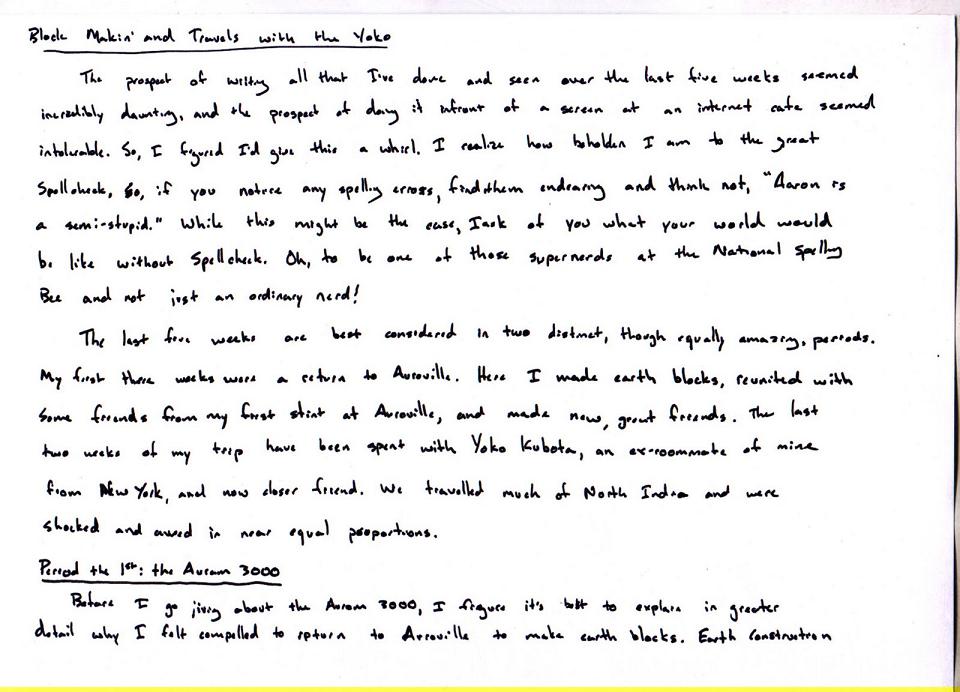 Block Makin' and Travels with the Yoko
The prospect of writing all that I've done and seen over the last five weeks seemed
incredibly daunting, and the prospect of doing it infront of a screen at an internet cafe seemed
intolerable. So, I figured I'd give this a whirl. I realize how beholden I am to the great
Spellcheck, so, if you notice any spelling errors, find them endearing and think not, "Aaron is
a semi-stupid." While this might be the case, I ask of you what your world would
be like without Spellcheck. Oh, to be one of those supernerds at the National Spelling
Bee and not just an ordinary nerd!
The last five weeks are best considered in two distinct, though equally amazing, periods.
My first three weeks were a return to Auroville. Here I made earth blocks, reunited with
some friends from my first stint at Auroville, and made new, great friends. The last
two weeks of my trip have been spent with Yoko Kubota, an ex-roommate of mine
from New York, and now closer friend. We travelled much of North India and were
shocked and awed in near equal proportions.
Period the 1st: the Auram 3000
Before I go jiving about the Auram 3000, I figure it's best to explain in greater
detail why I felt compelled to return to Auroville to make earth blocks. Earth construction